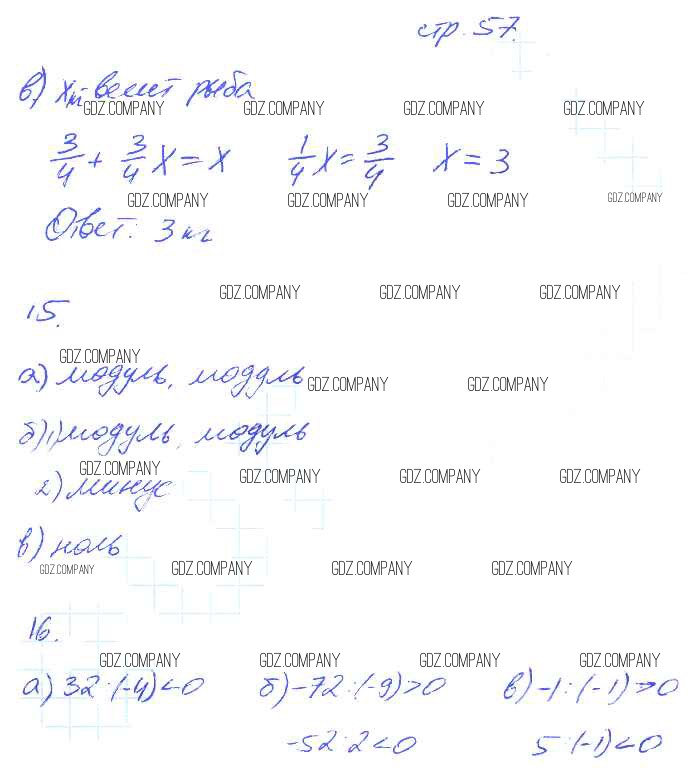 стр. 57.
в) x кг - весит рыба
GDZ.COMPANY GDZ.COMPANY GDZ.COMPANY GDZ.COMPANY
3/4 + 3/4 x = x 1/4 x = 3/4 x = 3
GDZ.COMPANY GDZ.COMPANY GDZ.COMPANY GDZ.COMPANY
Ответ: 3 кг
GDZ.COMPANY GDZ.COMPANY GDZ.COMPANY
15.
GDZ.COMPANY
а) модуль, модуль
GDZ.COMPANY GDZ.COMPANY
б) 1) модуль, модуль
GDZ.COMPANY GDZ.COMPANY GDZ.COMPANY GDZ.COMPANY
2) минус
в) ноль
GDZ.COMPANY GDZ.COMPANY GDZ.COMPANY GDZ.COMPANY
16.
GDZ.COMPANY GDZ.COMPANY GDZ.COMPANY GDZ.COMPANY
а) 32 : (-4) < 0 б) -72 : (-9) > 0 в) -1 : (-1) > 0
-52 : 2 < 0 5 : (-1) < 0